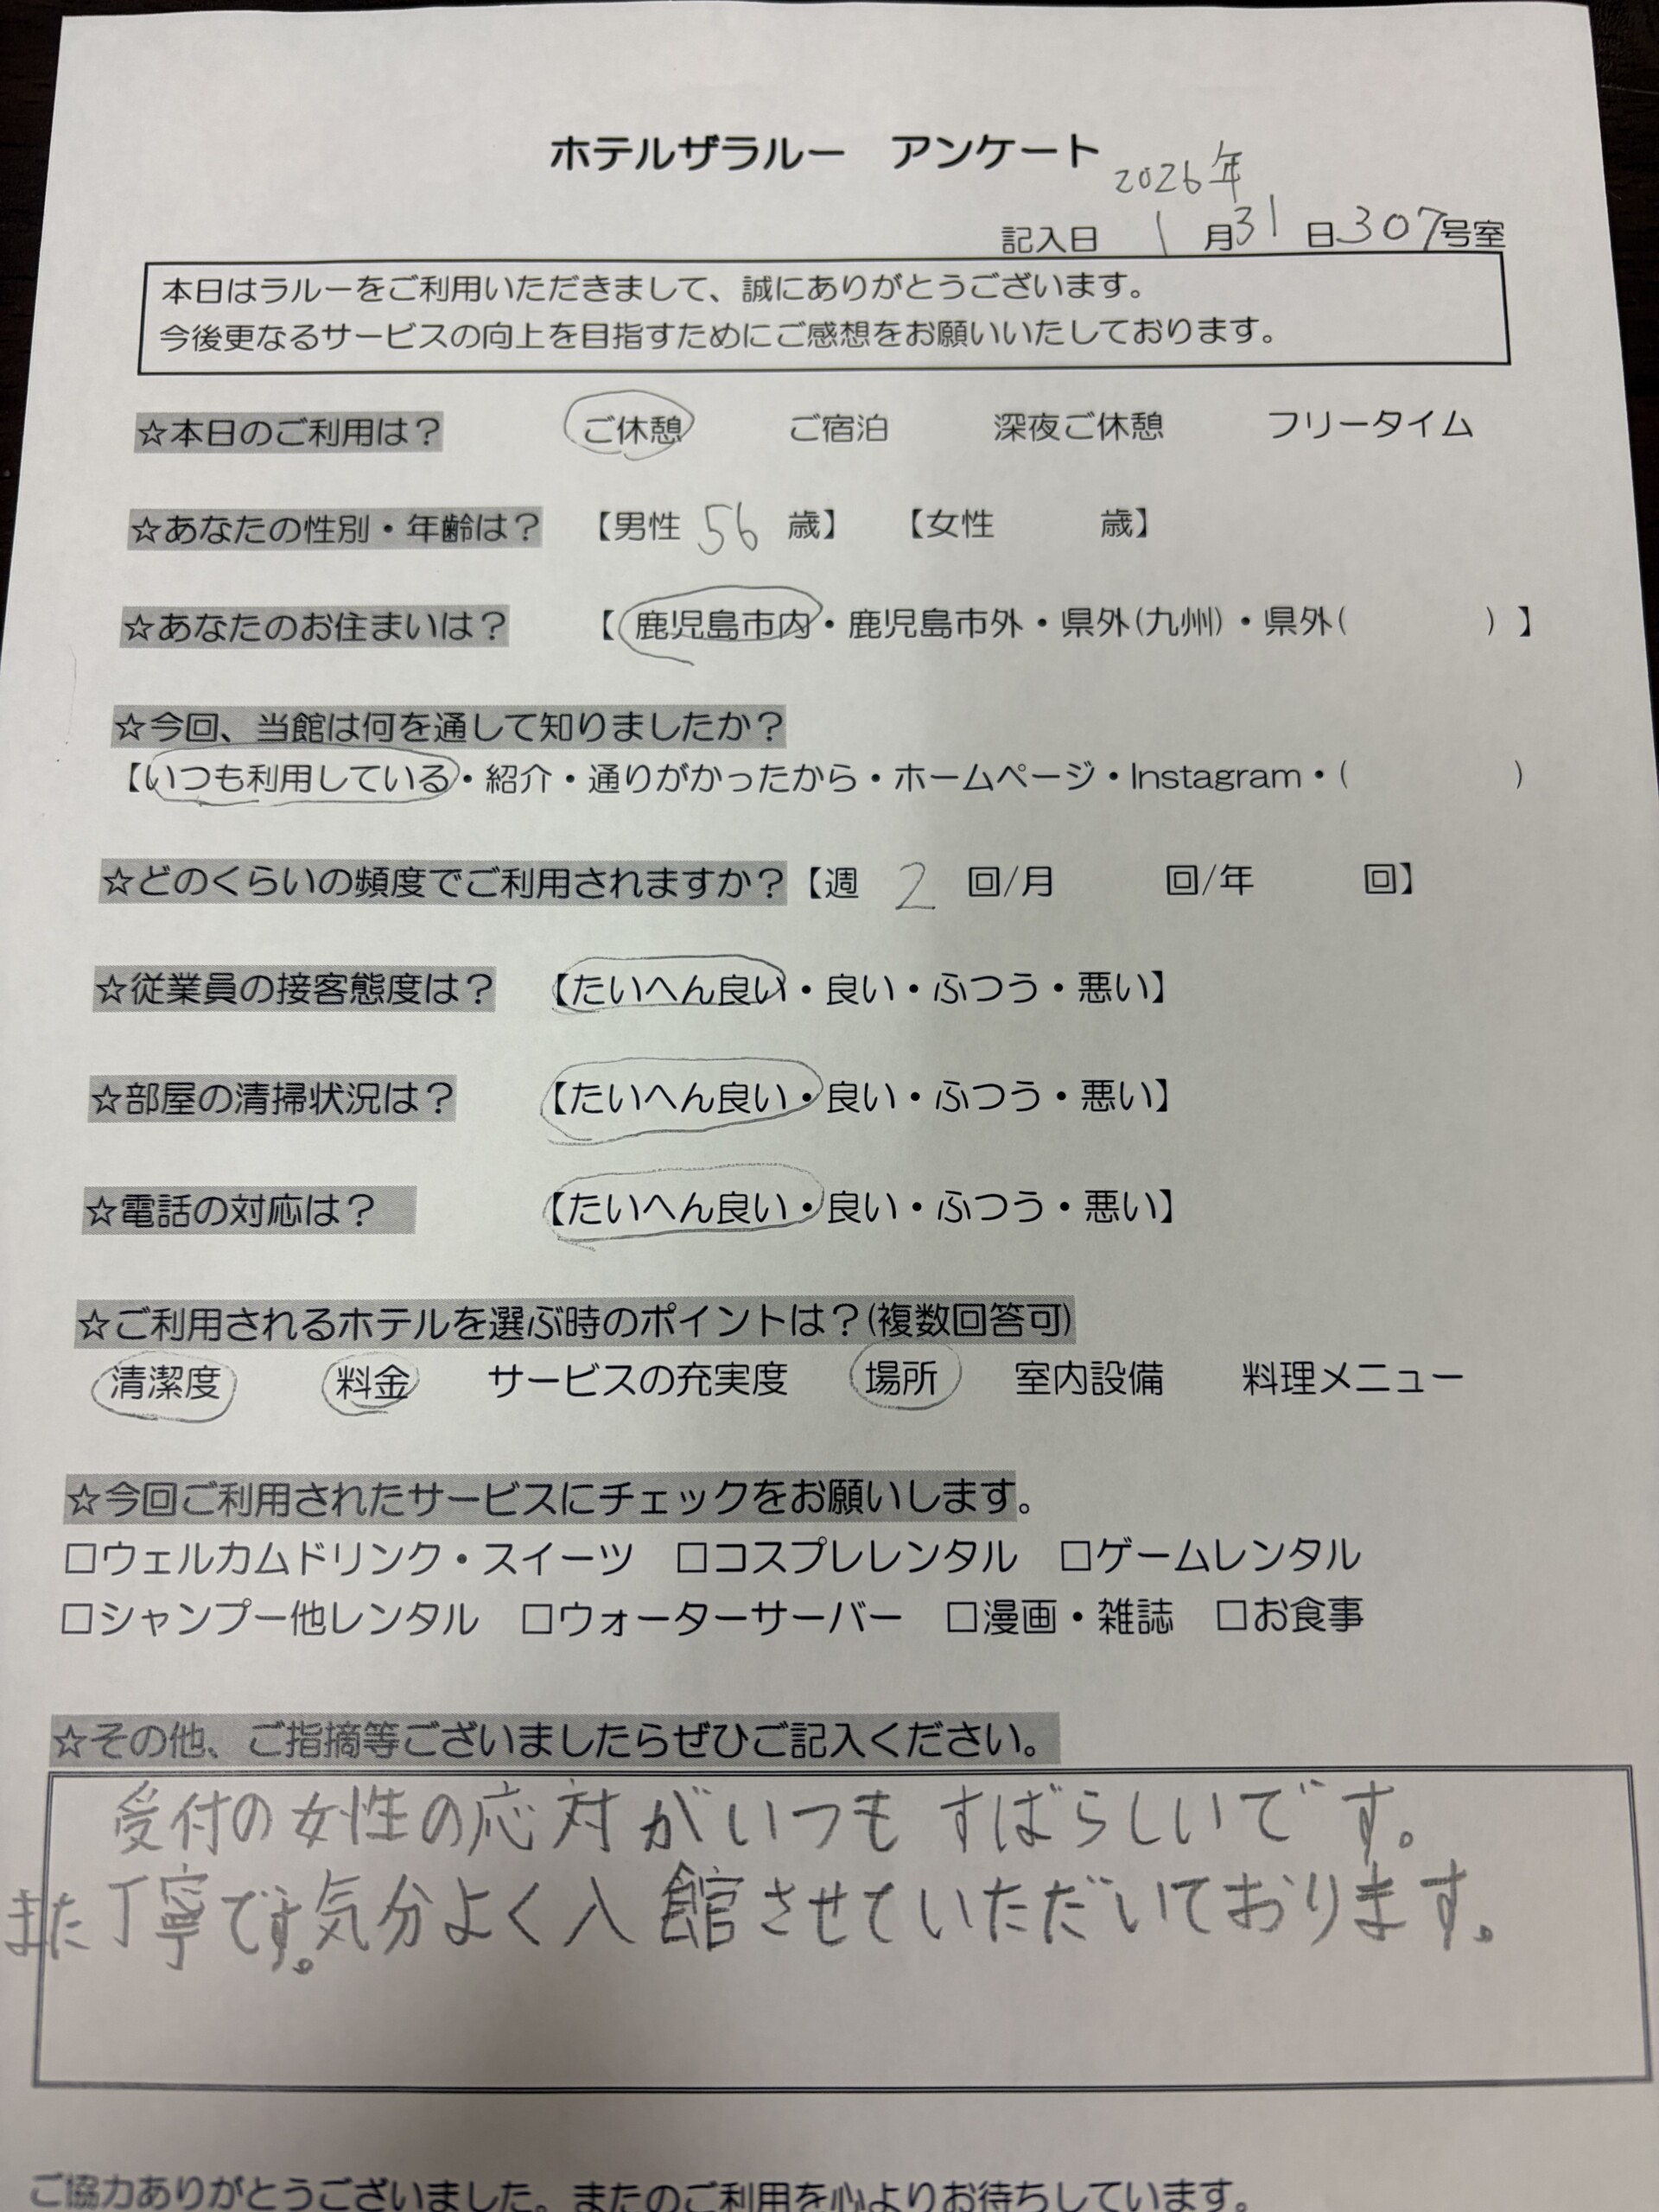 ホテルザラルー　アンケート
2026年
記入日　1月31日307号室
本日はラルーをご利用いただきまして、誠にありがとうございます。
今後更なるサービスの向上を目指すためにご感想をお願いいたしております。
☆本日のご利用は？　ご休憩　ご宿泊　深夜ご休憩　フリータイム
☆あなたの性別・年齢は？　【男性 56 歳】　【女性　　歳】
☆あなたのお住まいは？　【鹿児島市内・鹿児島市外・県外(九州)・県外(　　)】
☆今回、当館は何を通して知りましたか？
【いつも利用している・紹介・通りがかったから・ホームページ・Instagram・(　　)
☆どのくらいの頻度でご利用されますか？【週 2 回/月　　回/年　　回】
☆従業員の接客態度は？　【たいへん良い・良い・ふつう・悪い】
☆部屋の清掃状況は？　【たいへん良い・良い・ふつう・悪い】
☆電話の対応は？　【たいへん良い・良い・ふつう・悪い】
☆ご利用されるホテルを選ぶ時のポイントは？(複数回答可)
清潔度　料金　サービスの充実度　場所　室内設備　料理メニュー
☆今回ご利用されたサービスにチェックをお願いします。
□ウェルカムドリンク・スイーツ　□コスプレレンタル　□ゲームレンタル
□シャンプー他レンタル　□ウォーターサーバー　□漫画・雑誌　□お食事
☆その他、ご指摘等ございましたらぜひご記入ください。
受付の女性の応対がいつもすばらしいです。
また丁寧です。気分よく入館させていただいております。
ご協力ありがとうございました。またのご利用を心よりお待ちしています。